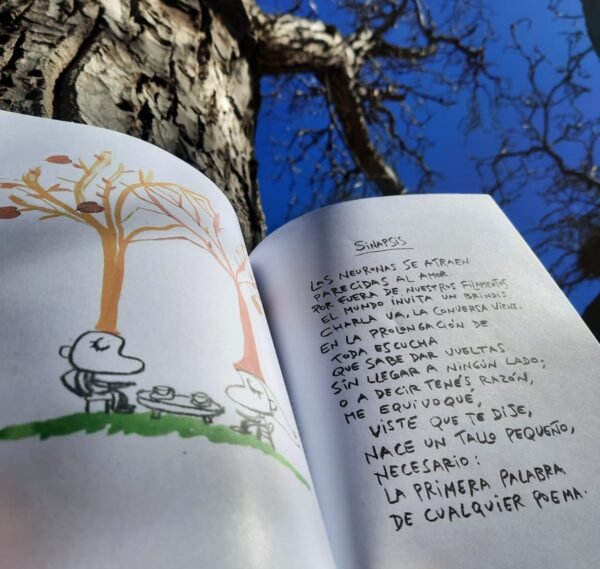 SINAPSIS
LAS NEURONAS SE ATRAEN
PARECIDAS AL AMOR.
POR FUERA DE NUESTROS FILAMENTOS
EL MUNDO INVITA UN BRINDIS
CHARLA VA, LA CONVERSA VIENE.
EN LA PROLONGACIÓN DE
TODA ESCUCHA
QUE SABE DAR VUELTAS
SIN LLEGAR A NINGÚN LADO;
O A DECIR TENÉS RAZÓN,
ME EQUIVOQUÉ,
VISTE QUE TE DIJE,
NACE UN TALLO PEQUEÑO,
NECESARIO:
LA PRIMERA PALABRA
DE CUALQUIER POEMA.